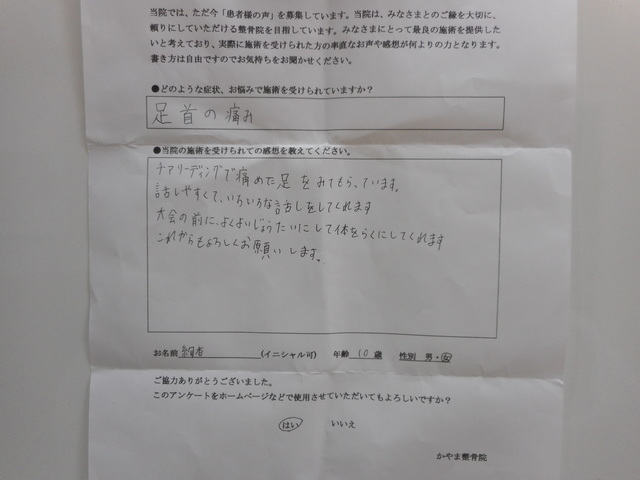 当院では、ただ今「患者様の声」を募集しています。当院は、みなさまとのご縁を大切に、
頼りにしていただける整骨院を目指しています。みなさまにとって最良の施術を提供した
いと考えており、実際に施術を受けられた方の率直なお声や感想が何よりの力となります。
書き方は自由ですのでお気持ちをお聞かせください。
●どのような症状、お悩みで施術を受けられていますか？
足首の痛み
●当院の施術を受けられての感想を教えてください。
チアリーディングで痛めた足をみてもらっています。
話しやすくて、いろいろな話しをしてくれます
大会の前に、よくよいじょうたいにして体をらくにしてくれます
これからもよろしくお願いします。
お名前 絢香 (イニシャル可) 年齢 10 歳 性別 男・女
ご協力ありがとうございました。
このアンケートをホームページなどで使用させていただいてもよろしいですか？
はい いいえ
かやま整骨院